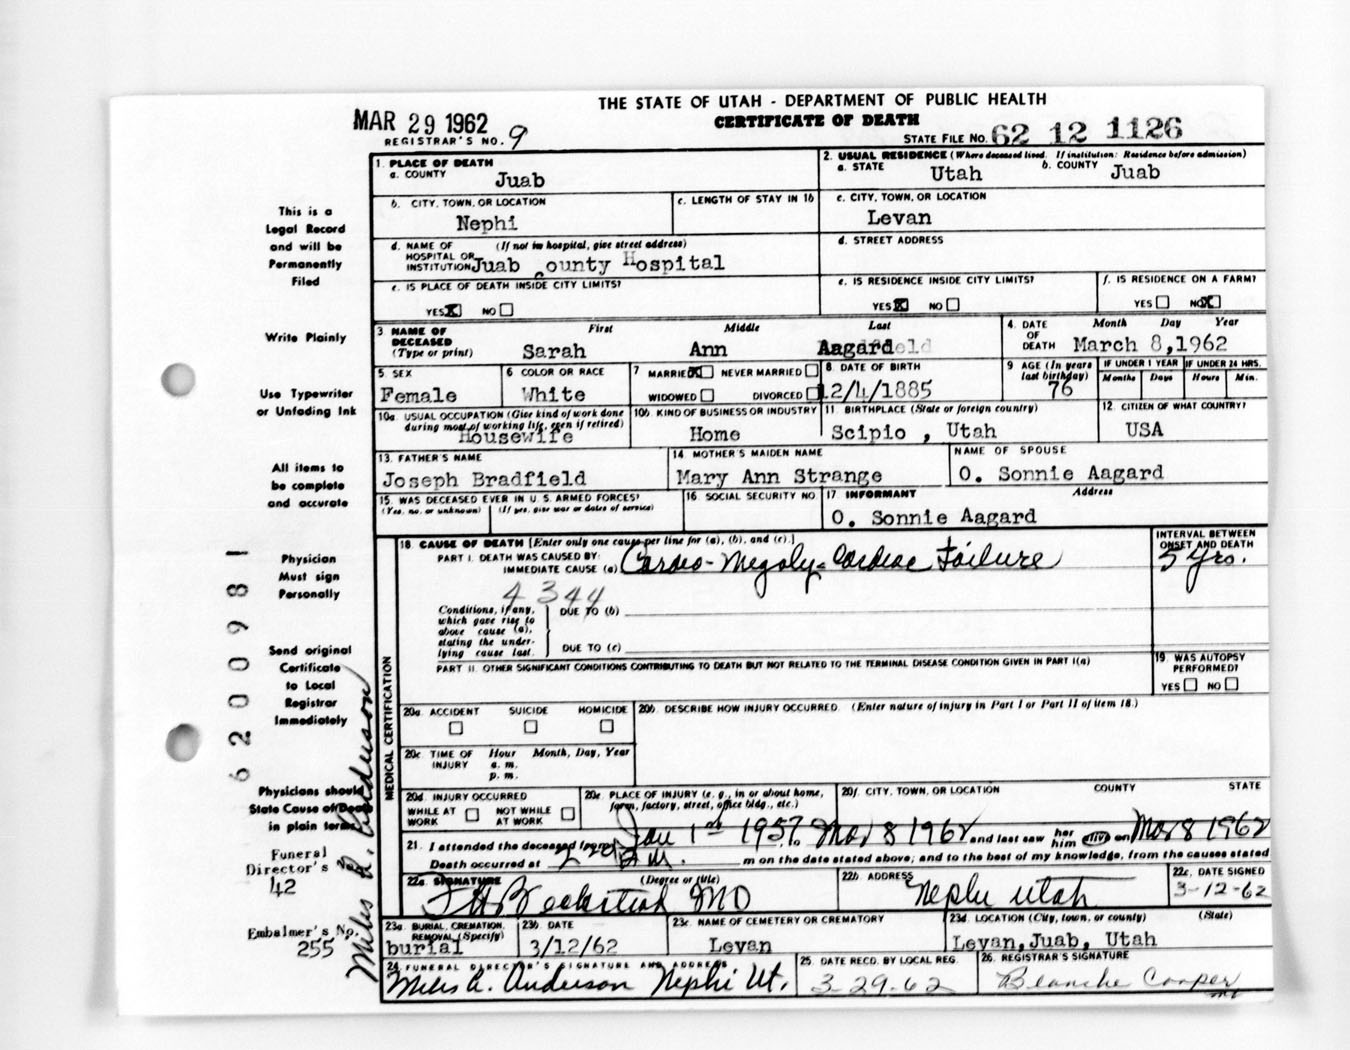 THE STATE OF UTAH - DEPARTMENT OF PUBLIC HEALTH
MAR 29 1962
CERTIFICATE OF DEATH
REGISTRAR'S NO. 9
STATE FILE NO. 62 12 1126
1. PLACE OF DEATH
a. COUNTY Juab
2. USUAL RESIDENCE (Where deceased lived. If institution: Residence before admission)
a. STATE Utah b. COUNTY Juab
b. CITY, TOWN, OR LOCATION
Nephi
c. LENGTH OF STAY IN 1b
c. CITY, TOWN, OR LOCATION
Levan
d. NAME OF (If not in hospital, give street address)
HOSPITAL OR
INSTITUTION Juab County Hospital
d. STREET ADDRESS
e. IS PLACE OF DEATH INSIDE CITY LIMITS?
YES X NO
e. IS RESIDENCE INSIDE CITY LIMITS?
YES X NO
f. IS RESIDENCE ON A FARM?
YES NO X
3 NAME OF
DECEASED
(Type or print)
First Middle Last
Sarah Ann Aagard
4. DATE
OF
DEATH
Month Day Year
March 8,1962
5. SEX
Female
6 COLOR OR RACE
White
7 MARRIED X NEVER MARRIED
WIDOWED DIVORCED
8. DATE OF BIRTH
12/4/1885
9 AGE (In years
last birthday)
76
IF UNDER 1 YEAR
Months Days
IF UNDER 24 HRS.
Hours Min.
10a. USUAL OCCUPATION (Give kind of work done
during most of working life, even if retired)
Housewife
10b. KIND OF BUSINESS OR INDUSTRY
Home
11. BIRTHPLACE (State or foreign country)
Scipio , Utah
12. CITIZEN OF WHAT COUNTRY?
USA
13. FATHER'S NAME
Joseph Bradfield
14 MOTHER'S MAIDEN NAME
Mary Ann Strange
NAME OF SPOUSE
O. Sonnie Aagard
15. WAS DECEASED EVER IN U.S. ARMED FORCES?
(Yes, no, or unknown) (If yes, give war or dates of service)
16 SOCIAL SECURITY NO.
17 INFORMANT Address
O. Sonnie Aagard
MEDICAL CERTIFICATION
18. CAUSE OF DEATH [Enter only one cause per line for (a), (b), and (c).]
PART I. DEATH WAS CAUSED BY:
IMMEDIATE CAUSE (a) Cardio-Megaly - Cardiac Failure
INTERVAL BETWEEN
ONSET AND DEATH
5 yrs.
4344
Conditions, if any,
which gave rise to
above cause (a),
stating the under-
lying cause last.
DUE TO (b)
DUE TO (c)
PART II. OTHER SIGNIFICANT CONDITIONS CONTRIBUTING TO DEATH BUT NOT RELATED TO THE TERMINAL DISEASE CONDITION GIVEN IN PART I(a)
19. WAS AUTOPSY
PERFORMED?
YES NO
20a. ACCIDENT SUICIDE HOMICIDE
20b. DESCRIBE HOW INJURY OCCURRED. (Enter nature of injury in Part I or Part II of item 18.)
20c TIME OF
INJURY
Hour Month, Day, Year
a. m.
p. m.
20d. INJURY OCCURRED
WHILE AT
WORK
NOT WHILE
AT WORK
20e. PLACE OF INJURY (e. g., in or about home,
farm, factory, street, office bldg., etc.)
20f. CITY, TOWN, OR LOCATION COUNTY STATE
21. I attended the deceased from Jan 1st 1957 to Mar 8 1962 and last saw her him alive on Mar 8 1962
Death occurred at m on the date stated above; and to the best of my knowledge, from the causes stated
22a. SIGNATURE (Degree or title)
Beckstead MD
22b. ADDRESS
Nephi Utah
22c. DATE SIGNED
3-12-62
23a. BURIAL, CREMATION,
REMOVAL (Specify)
burial
23b. DATE
3/12/62
23c. NAME OF CEMETERY OR CREMATORY
Levan
23d. LOCATION (City, town, or county) (State)
Levan, Juab, Utah
24. FUNERAL DIRECTOR'S SIGNATURE AND ADDRESS
Miles A. Anderson Nephi Ut.
25. DATE RECD. BY LOCAL REG.
3-29-62
26. REGISTRAR'S SIGNATURE
Blanche Cooper
This is a
Legal Record
and will be
Permanently
Filed
Write Plainly
Use Typewriter
or Unfading Ink
All items to
be complete
and accurate
Physician
Must sign
Personally
Send original
Certificate
to Local
Registrar
Immediately
Physicians should
State Cause of Death
in plain terms
Funeral
Director's No.
42
Embalmer's No.
255
Miles A. Anderson
6200981